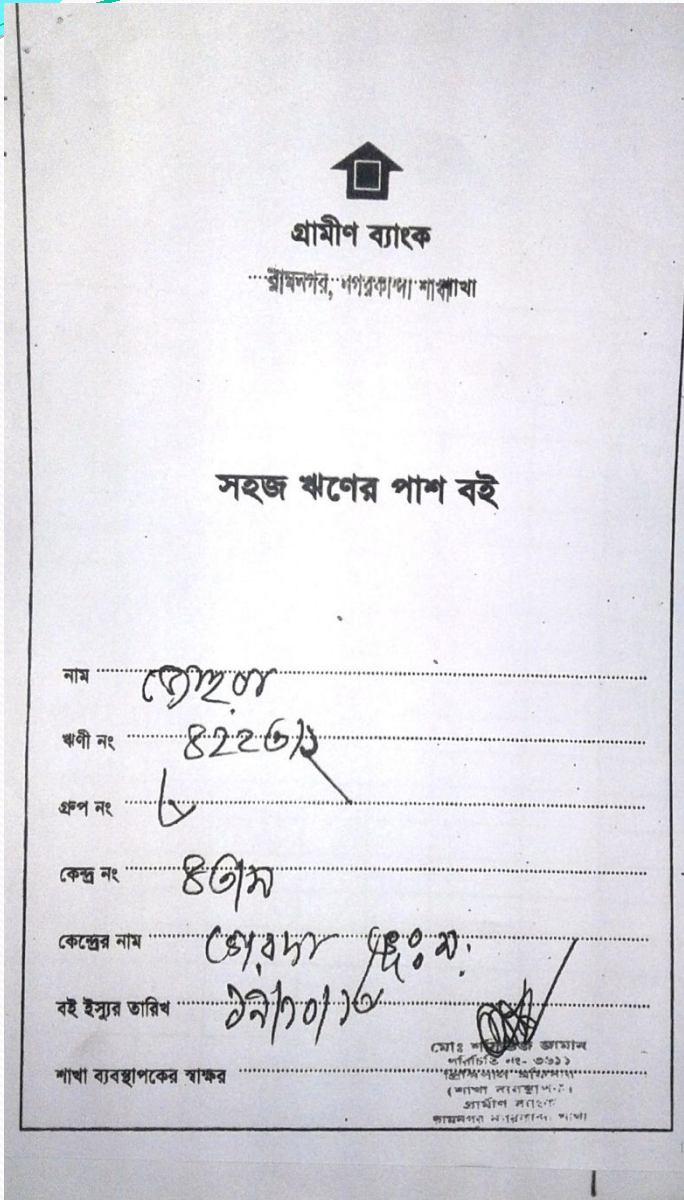 গ্রামীণ ব্যাংক
রামনগর, নগরকান্দা শাখা
সহজ ঋণের পাশ বই
নাম জোহরা
ঋণী নং ৪২২৩/২
গ্রুপ নং ৮
কেন্দ্র নং ৪৩/ম
কেন্দ্রের নাম
বই ইস্যুর তারিখ
শাখা ব্যবস্থাপকের স্বাক্ষর
মোঃ জামান
পরিচিতি নং-
(শাখা ব্যবস্থাপক)
গ্রামীণ ব্যাংক
রামনগর নগরকান্দা শাখা